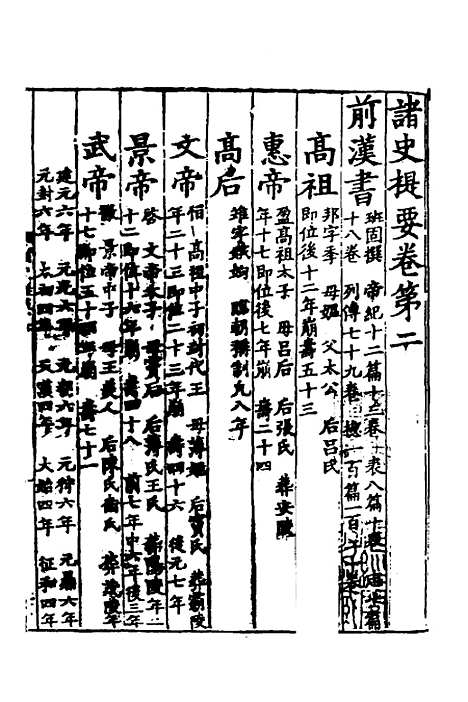 諸史提要卷第二
前漢書
班固撰 帝紀十二篇十三卷 表八篇十卷
十八卷 列傳七十九卷 一百篇一百
高祖
邦字季 母媼 父太公 后呂氏
即位後十二年崩壽五十三
惠帝
盈高祖太子 母呂后 后張氏 葬安陵
年十七即位後七年崩 壽二十四
高后
雉字娥姁 臨朝稱制凡八年
文帝
恒 高祖中子初封代王 母薄姬 后竇氏 葬霸陵
年二十三即位二十三年崩 壽四十六 後元七年
景帝
啓 文帝太子 母竇后 后薄氏王氏 葬陽陵年三
十二即位十六年崩 壽四十八 前七年中六年後三年
武帝
徹 景帝中子 母王美人 后陳氏衛氏 葬茂陵年
十七即位五十四年崩 壽七十一
建元六年 元光六年 元朔六年 元狩六年 元鼎六年
元封六年 太初四年 天漢四年 太始四年 征和四年